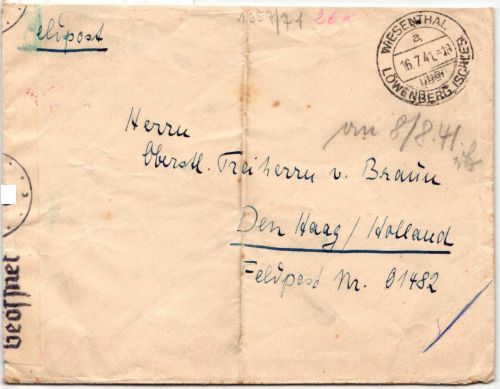 1357/71 26x
Feldpost
WIESENTHAL
a
16.7.41.-18
über
LÖWENBERG (SCHLES)
an 8/8.41
Herrn
Oberstl. Freiherrn v. Braun
Den Haag / Holland
Feldpost Nr. 01482
Geöffnet